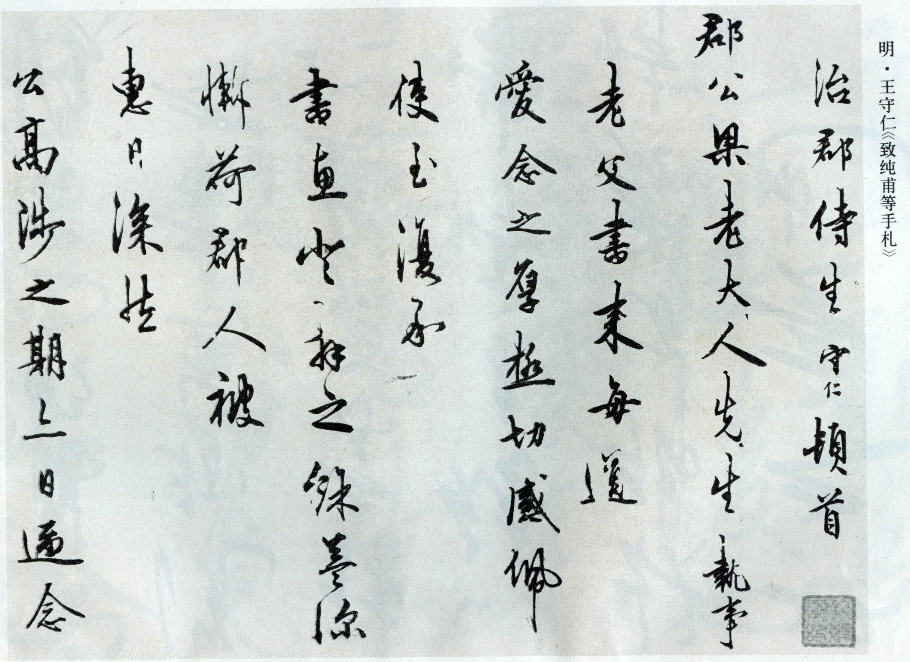 明·王守仁《致纯甫等手札》
治郡侍生守仁頓首
郡公果老大人先生執事
老父書來每道
愛念之厚極切感佩
使至復承
書惠登拜之餘益深
慚荷郡人被
惠日深然
公高陟之期亦日邇念